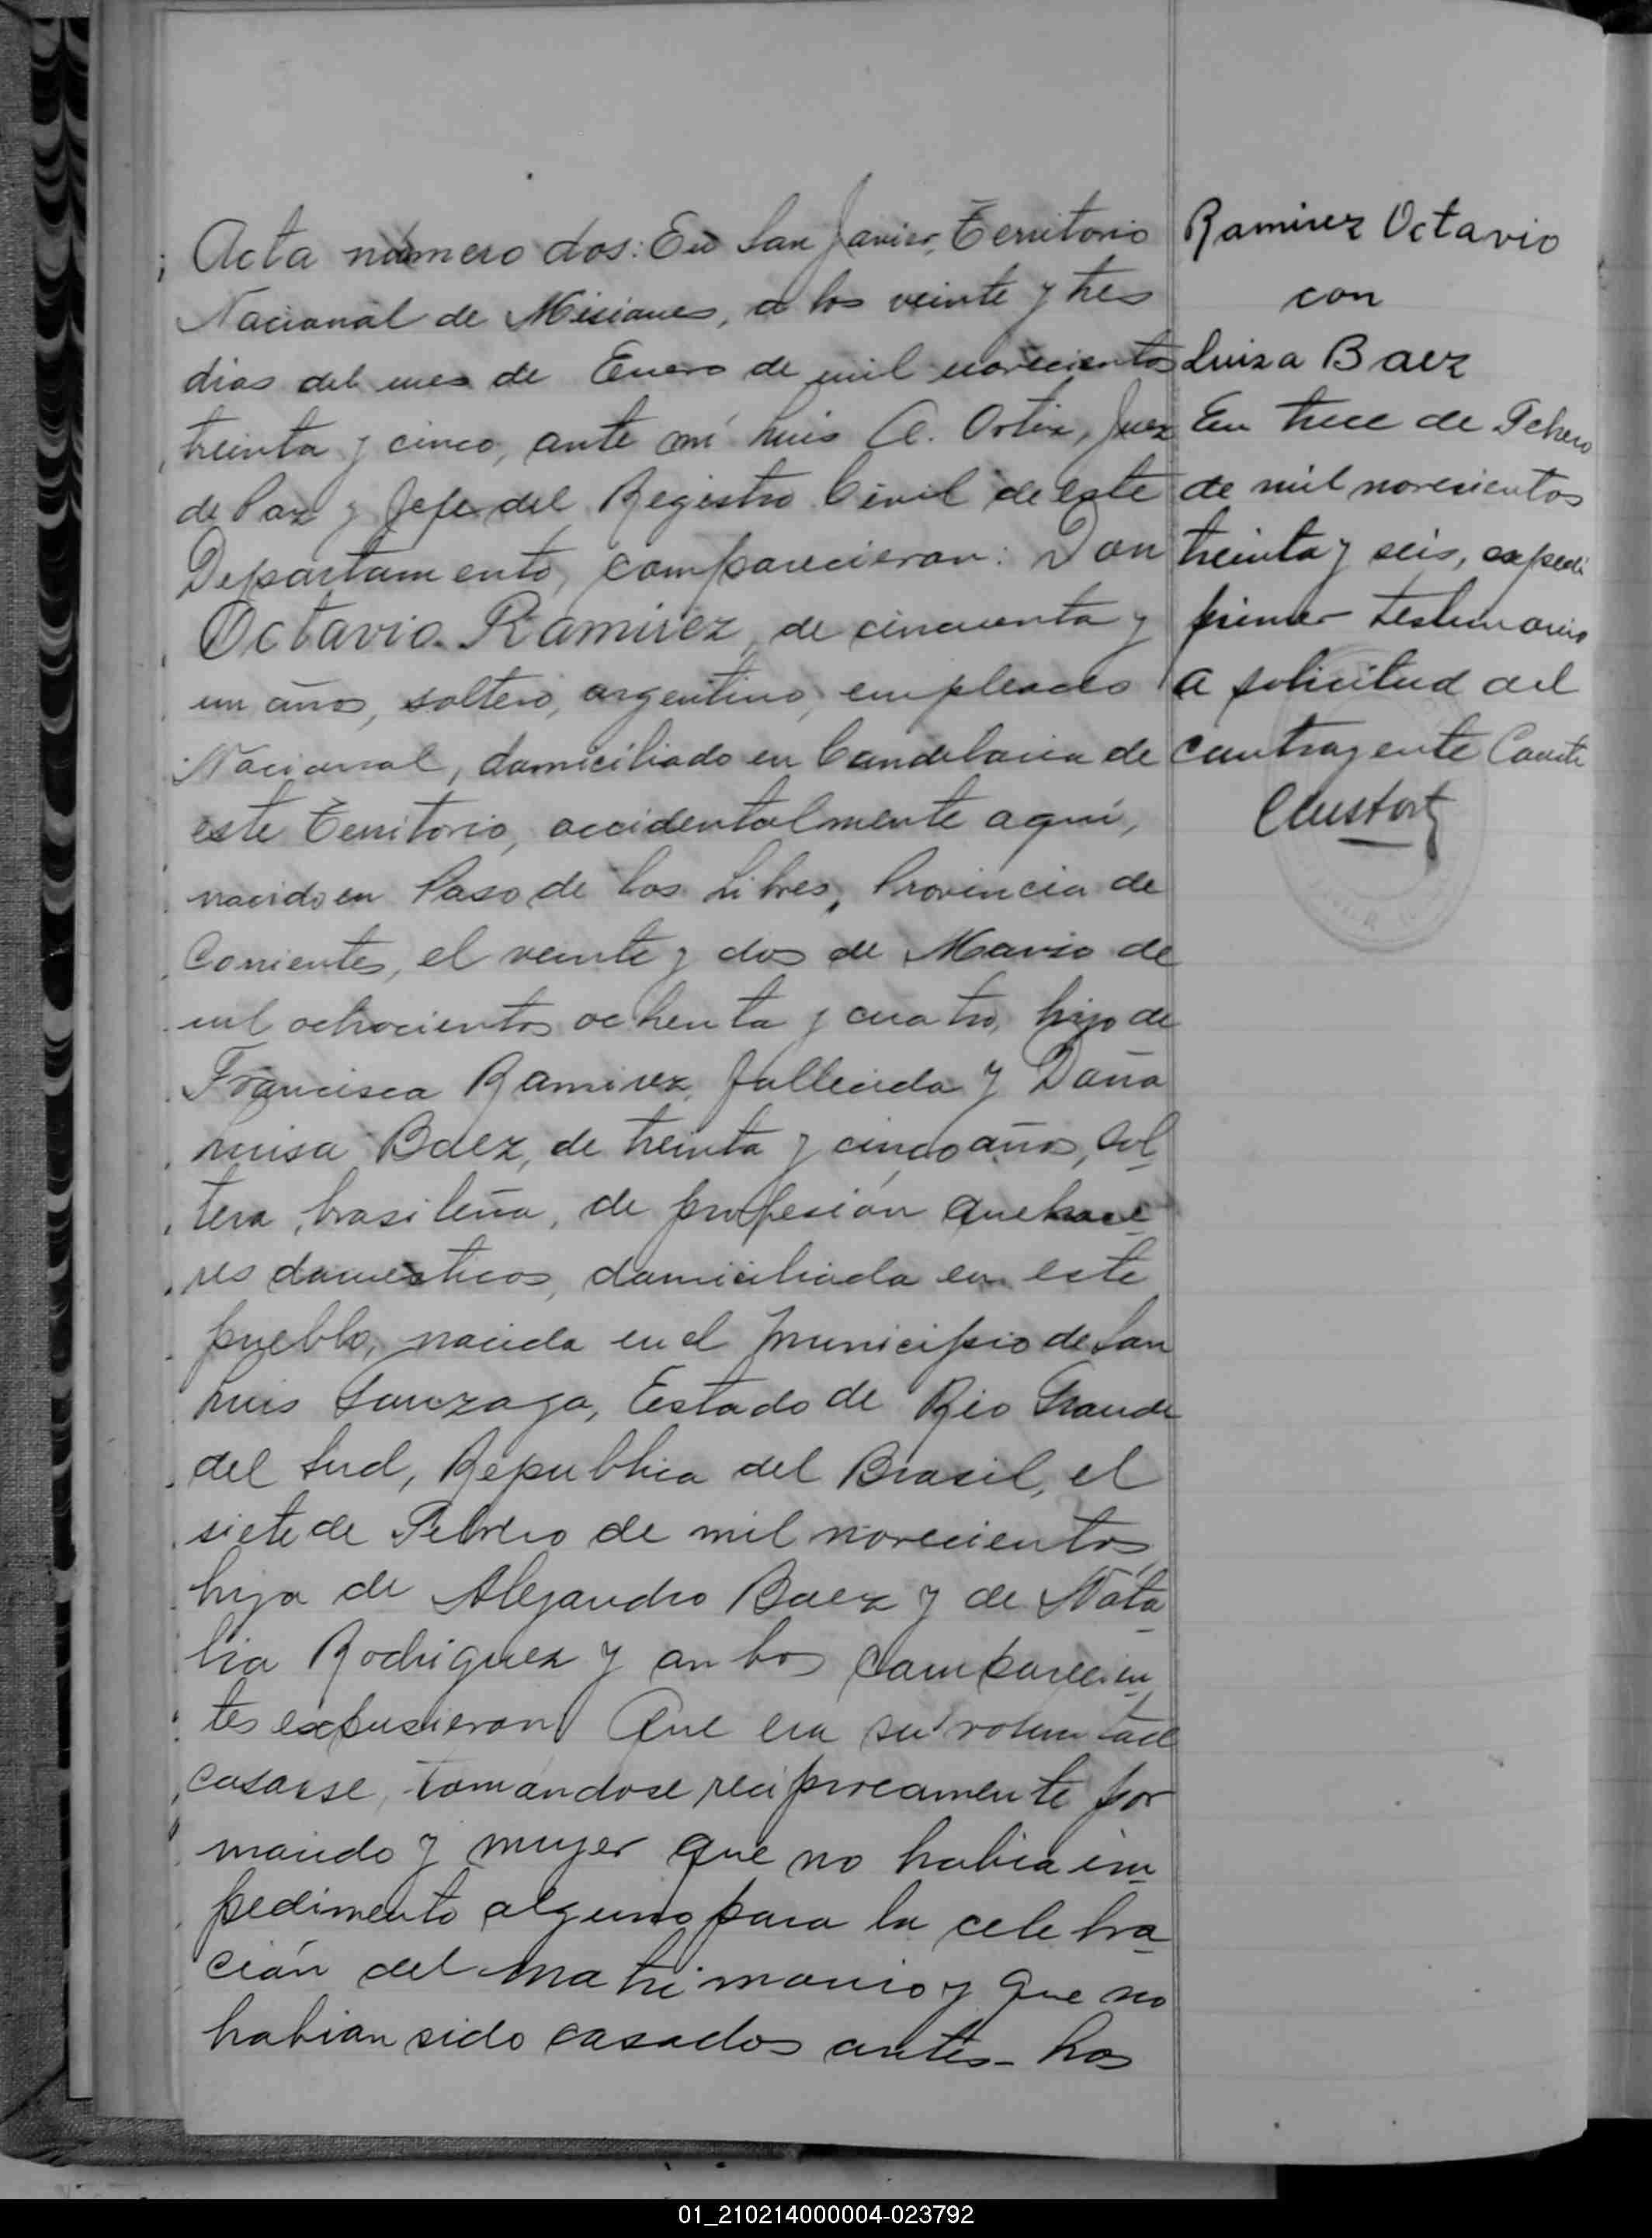 Acta número dos: En San Javier, Territorio
Nacional de Misiones, a los veinte y tres
dias del mes de Enero de mil novecientos
treinta y cinco, ante mí Luis A. Ortiz, Juez
de Paz y Jefe del Registro Civil de este
Departamento, comparecieron: Don
Octavio Ramirez, de cincuenta y
un años, soltero, argentino, empleado
Nacional, domiciliado en Candelaria de
este Territorio, accidentalmente aquí,
nacido en Paso de los Libres, Provincia de
Corrientes, el veinte y dos de Marzo de
mil ochocientos ochenta y cuatro, hijo de
Francisca Ramirez, fallecida y Doña
Luisa Baez, de treinta y cinco años, sol
tera, brasileña, de profesión quehace
res domesticos, domiciliada en este
pueblo, nacida en el municipio de San
Luis Gonzaga, Estado de Rio Grande
del Sud, Republica del Brasil, el
siete de Febrero de mil novecientos
hija de Alejandro Baez y de Nata
lia Rodriguez y ambos comparecien
tes expusieron Que era su voluntad
casarse, tomándose reciprocamente por
marido y mujer que no habia im
pedimento alguno para la celebra
ción del matrimonio y que no
habian sido casados antes- Los
Ramirez Octavio
con
Luisa Baez
En trece de Febrero
de mil novecientos
treinta y seis, expedi
primer testimonio
a solicitud del
contrayente Conste
01_210214000004-023792